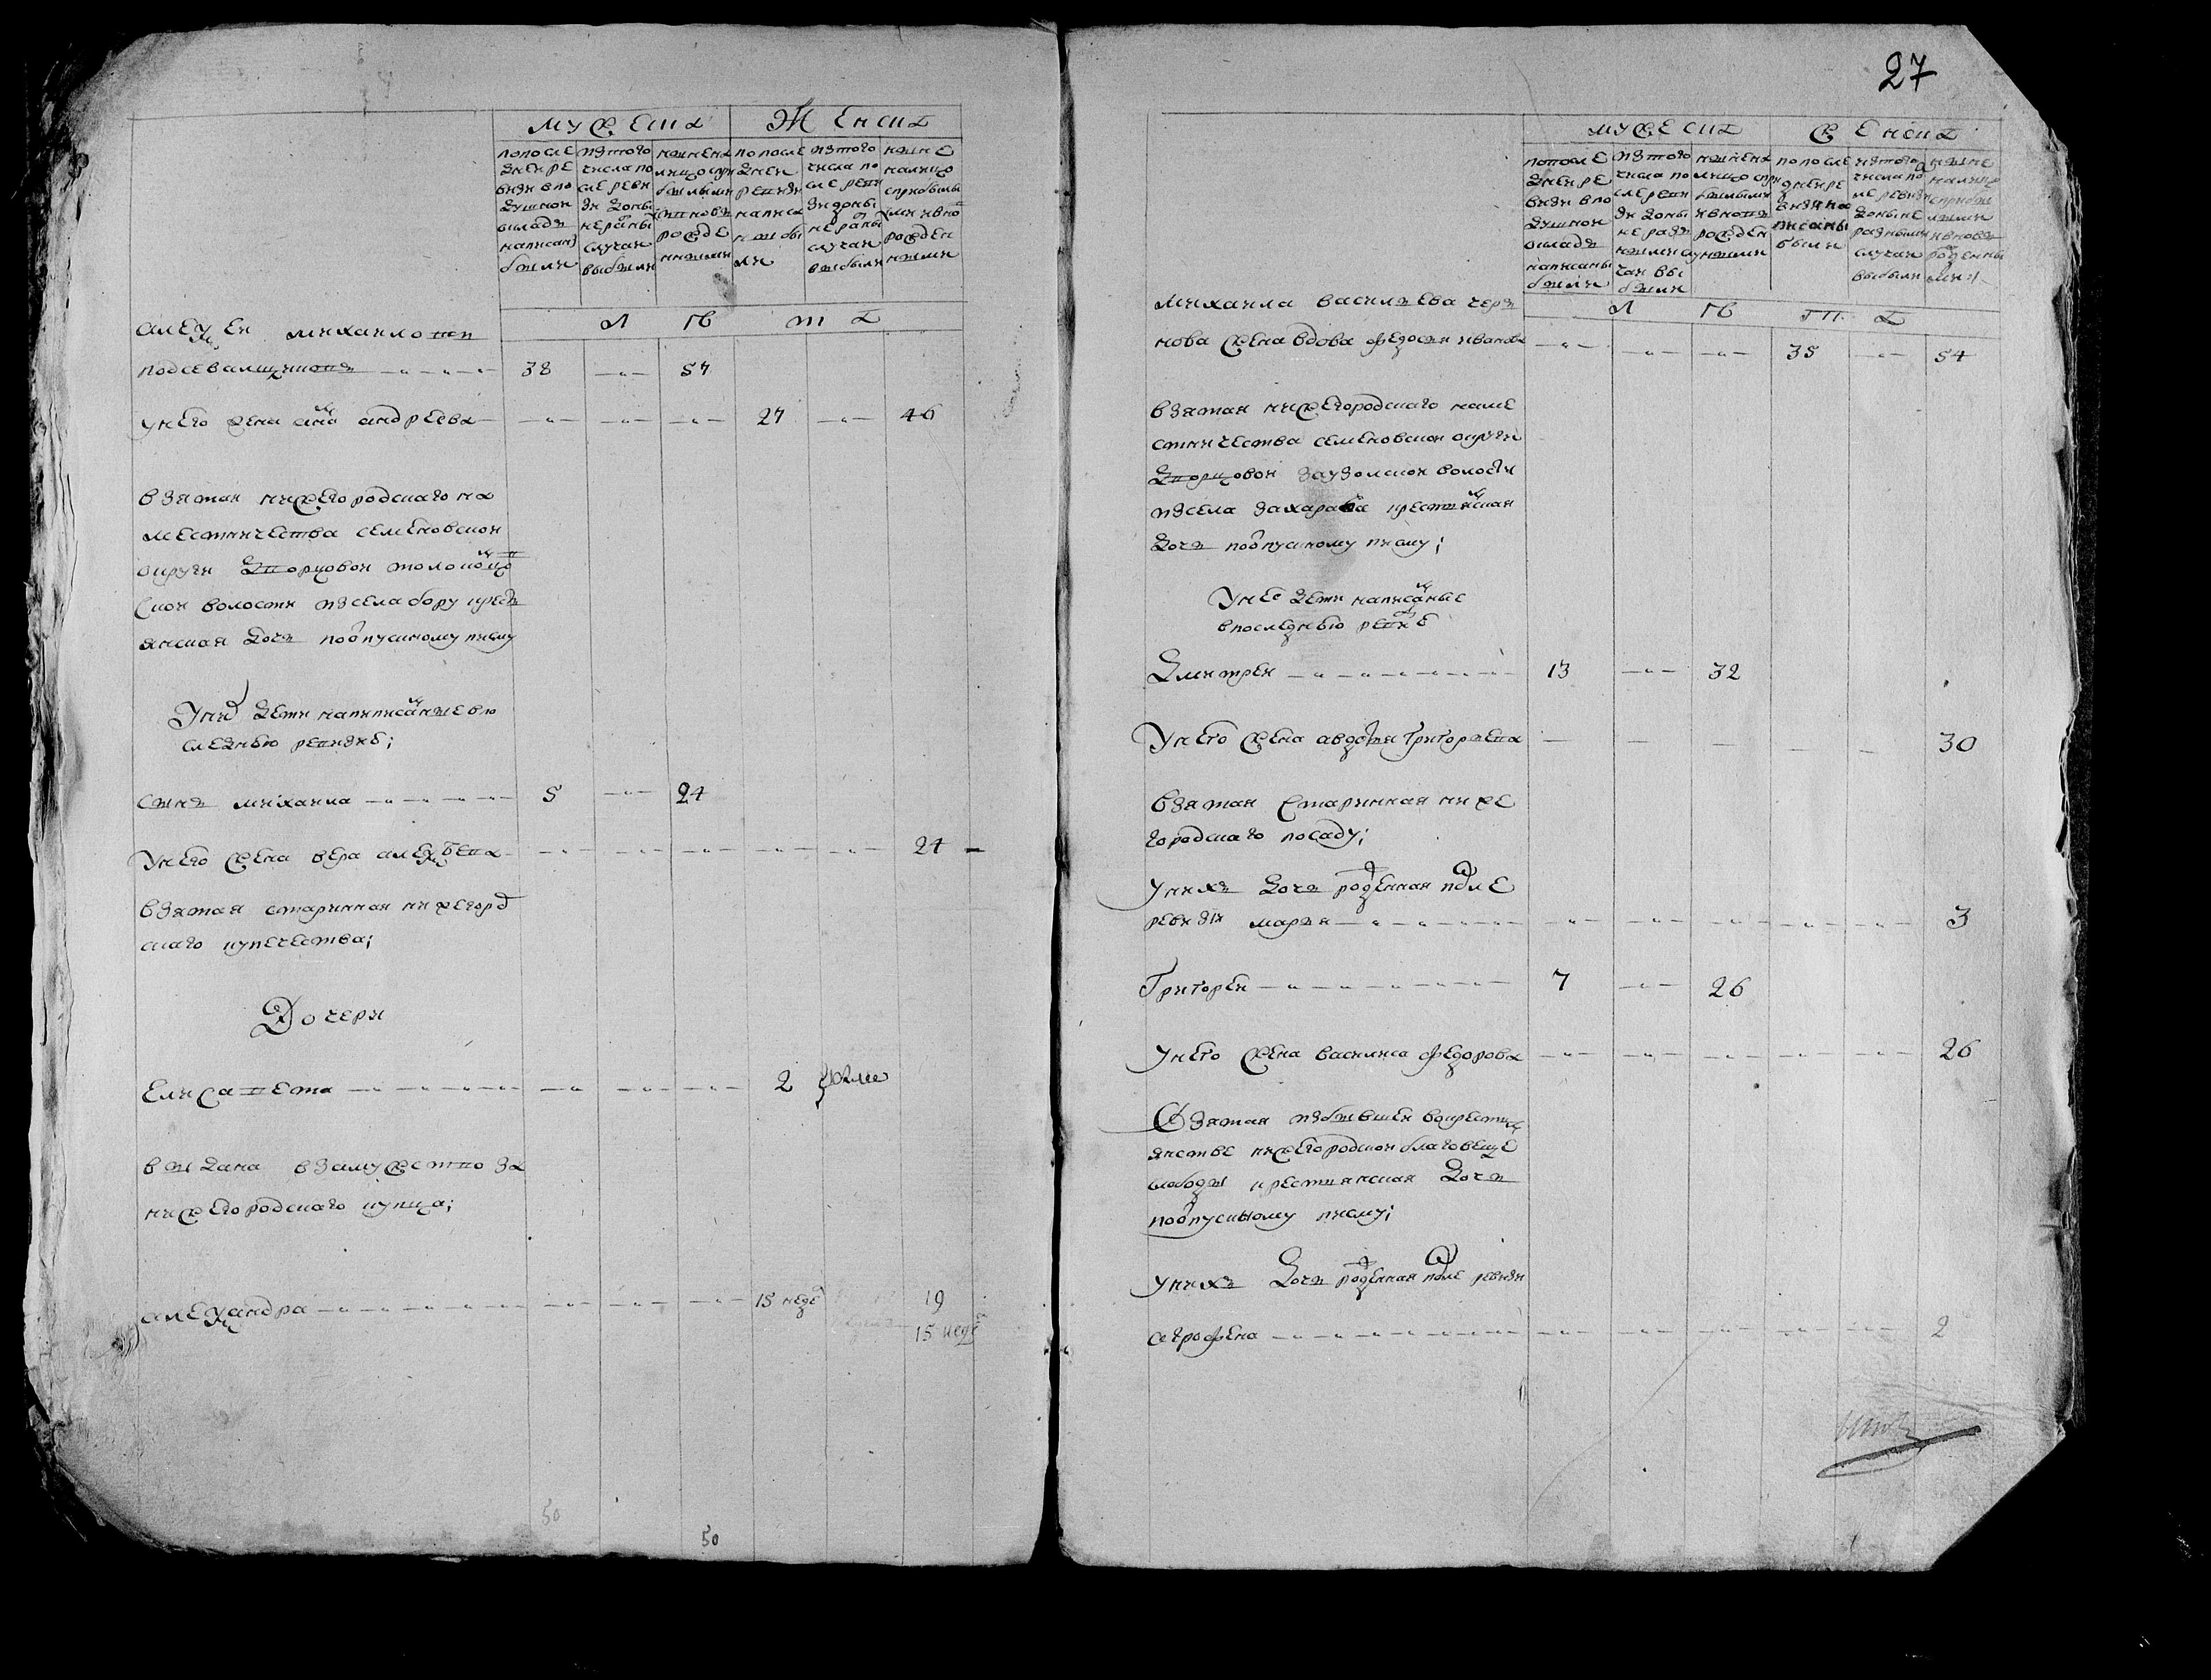 27
мужеска
Женска
попосле
дней ре
визи впо
душной
окладъ
написан
были
изтого
числа по
сле реви
зи доны
не разны
случаи
выбыли
ныне на
лицо спри
былыми
и вновь
рожде
нными
попосле
дней
ревизи
написа
ны бы
ли
изтого
числа по
сле реви
зи доны
не разны
случаи
выбыли
ныне
налицо
сприбылы
ми ивно
рожден
ными
Л Ѣ т а
алексеи михаиловъ
подсевалщиковъ 38 57
унего жена анна андреева 27 46
взятая нижегородскаго на
местничества семеновскои
округи дворцовои толоконцо
скои волости изсела бору крестъ
янская дочь поотпускному писму
Уних дети написанные впо
следнъю ревизию;
сынъ михаила 5 24
Унего жена вера алексѣева 24
взятая старинная нижегород
скаго купечества;
Дочери
Елисавета 2
выдана взамужство за
нижегородскаго купца;
александра 15 неде 19
15 неде
50
50
мужеска
женска
попосле
дней ре
визи впо
душной
окладъ
написаны
были
изтого
числа по
сле реви
зи доны
не разн
ыми слу
чаи вы
были
ныне на
лицо спри
былыми
ивновь
рожден
ными
попосле
дней ре
визи на
писаны
были
изтого
числа по
сле ревизи
доныне
разными
случаи
выбыли
ныне
налицо
сприбы
лыми
ивновь
рожденны
ми
Л Ѣ т а
михаила васильева черн
нова жена вдова федосья иванова 35 54
взятая нижегородскаго наме
стничества семеновскои округи
дворцовои заузолскои волости
изсела захарава крестьянская
дочь поотпускному писму;
Унее дети написанные
впоследнъю ревизию
Дмитреи 13 32
Унего жена авдотья григорьева 30
взятая старинная ниже
городскаго посаду;
Унихъ дочь рожденная после
ревизии марья 3
Григореи 7 26
Унего жена василиса федорова 26
взятая избывшеи вокресть
янстве нижегородскои благовеще
слободы крестьянская дочь
поотпускному писму;
Унихъ дочь рожденная после ревизи
агрофена 2